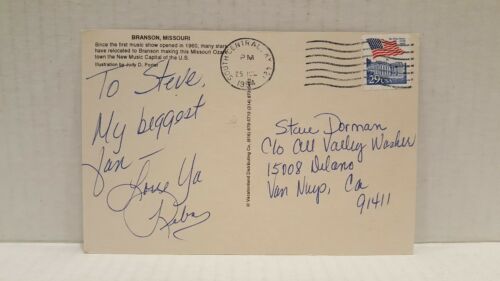 BRANSON, MISSOURI
Since the first music show opened in 1960, many stars
have relocated to Branson making this Missouri Ozark
town the New Music Capital of the U.S.
Illustration by Judy D.
To Steve,
My biggest
fan —
Love Ya
Reba
© Vacationland Distributing Co.
SOUTH CENTRAL, KY 421
PM
25
1994
29 USA
Steve Dorman
C/o All Valley Washer
15008 Delano
Van Nuys, Ca
91411